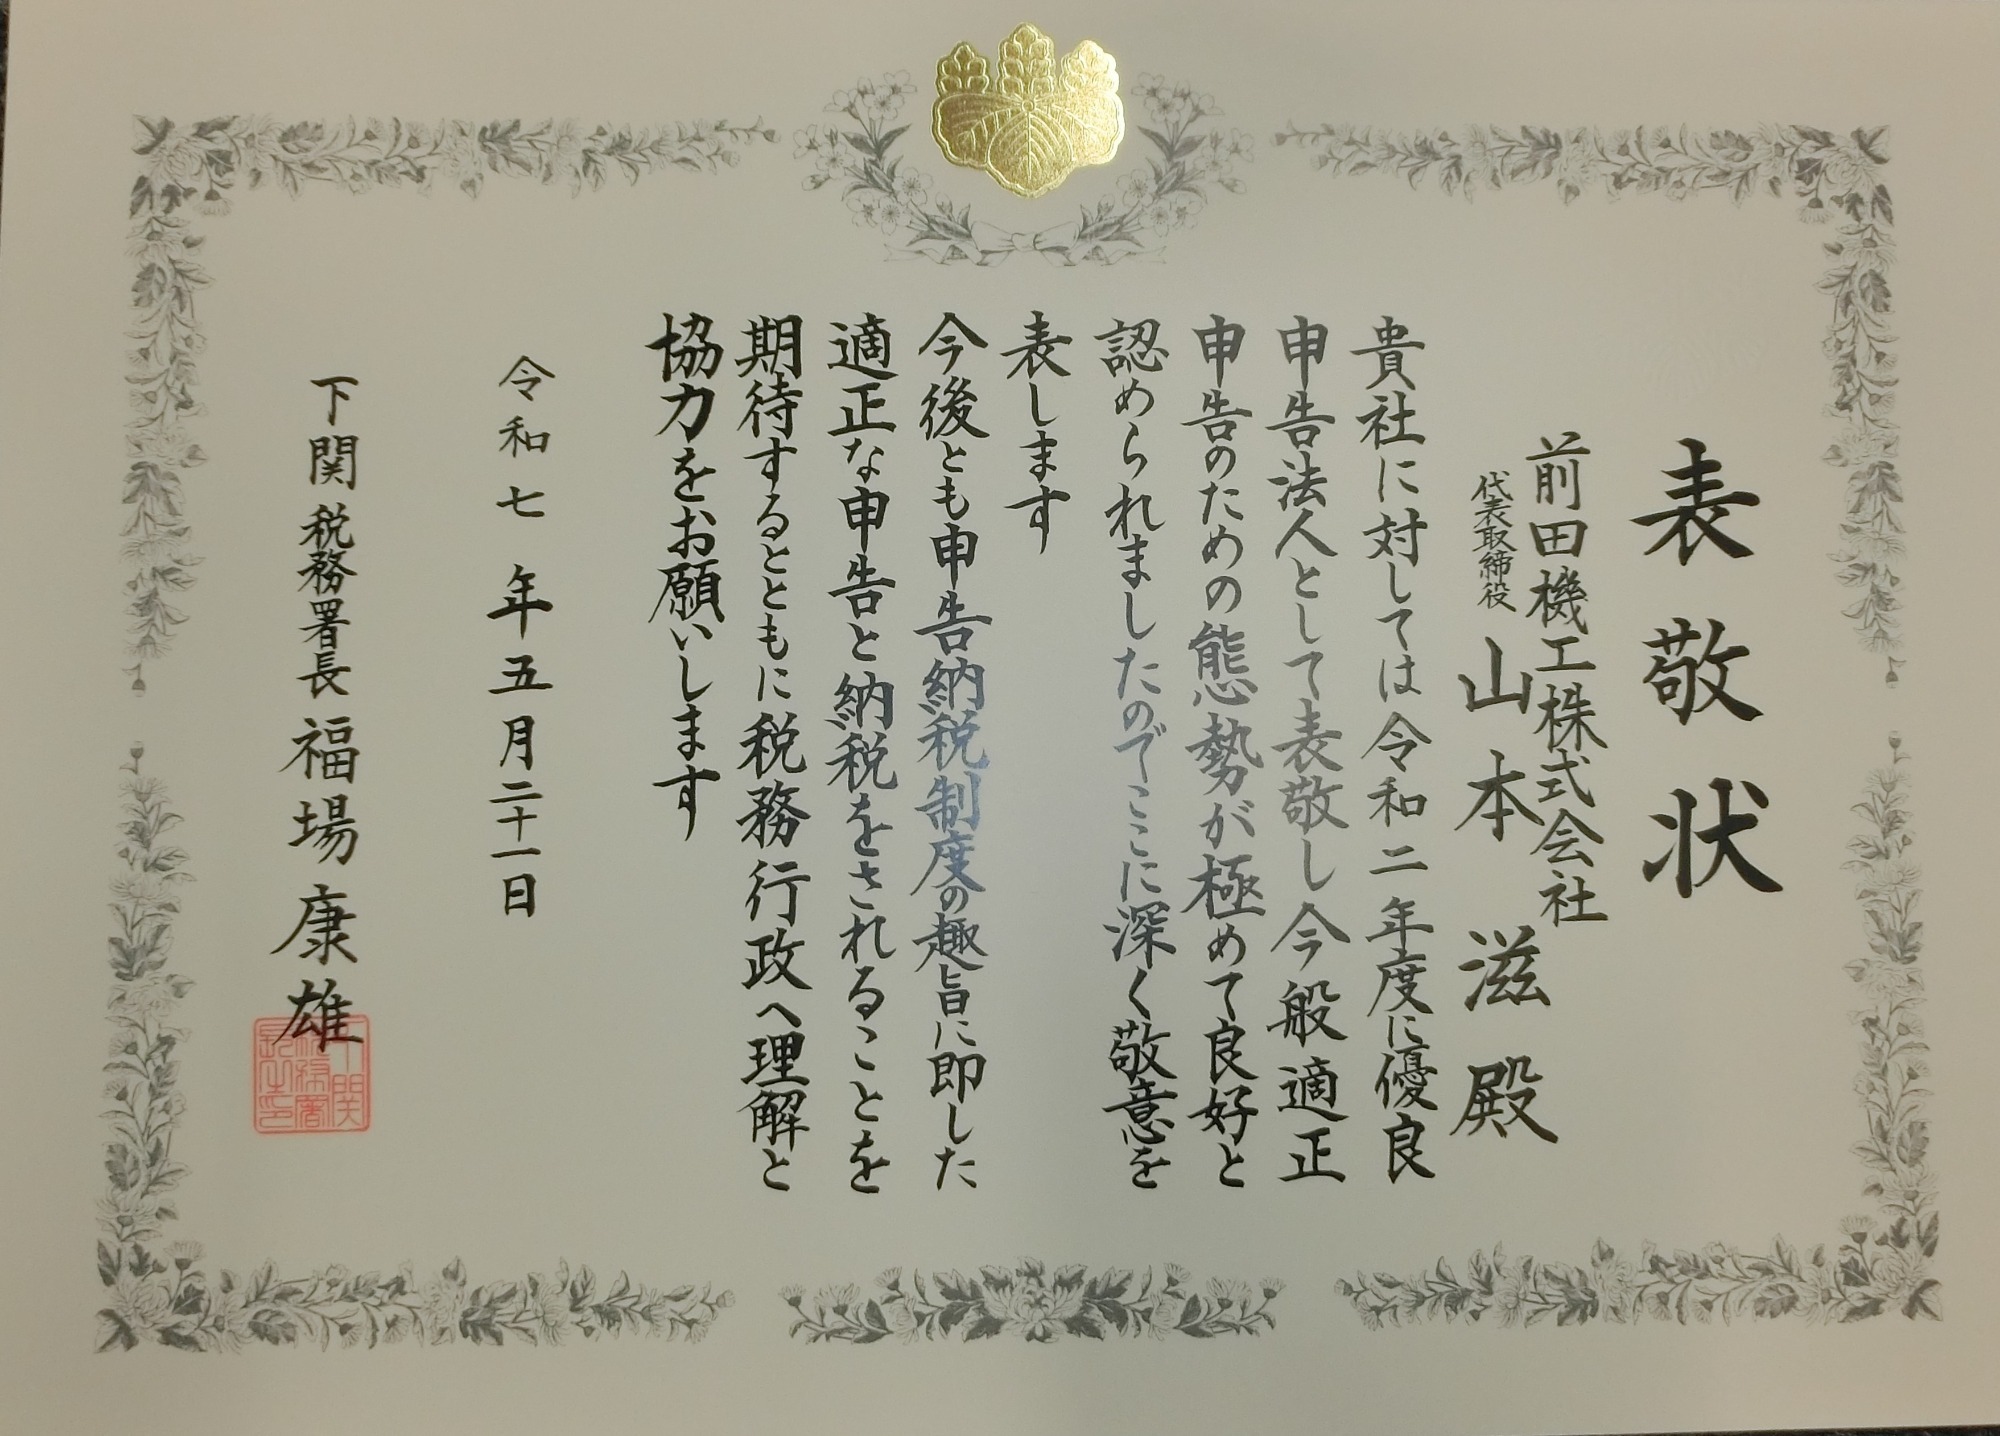 表敬状
前田機工株式会社
代表取締役 山本 滋 殿
貴社に対しては令和二年度に優良
申告法人として表敬し今般適正
申告のための態勢が極めて良好と
認められましたのでここに深く敬意を
表します
今後とも申告納税制度の趣旨に即した
適正な申告と納税をされることを
期待するとともに税務行政へ理解と
協力をお願いします
令和七年五月二十一日
下関税務署長 福場康雄
下関税務署長之印